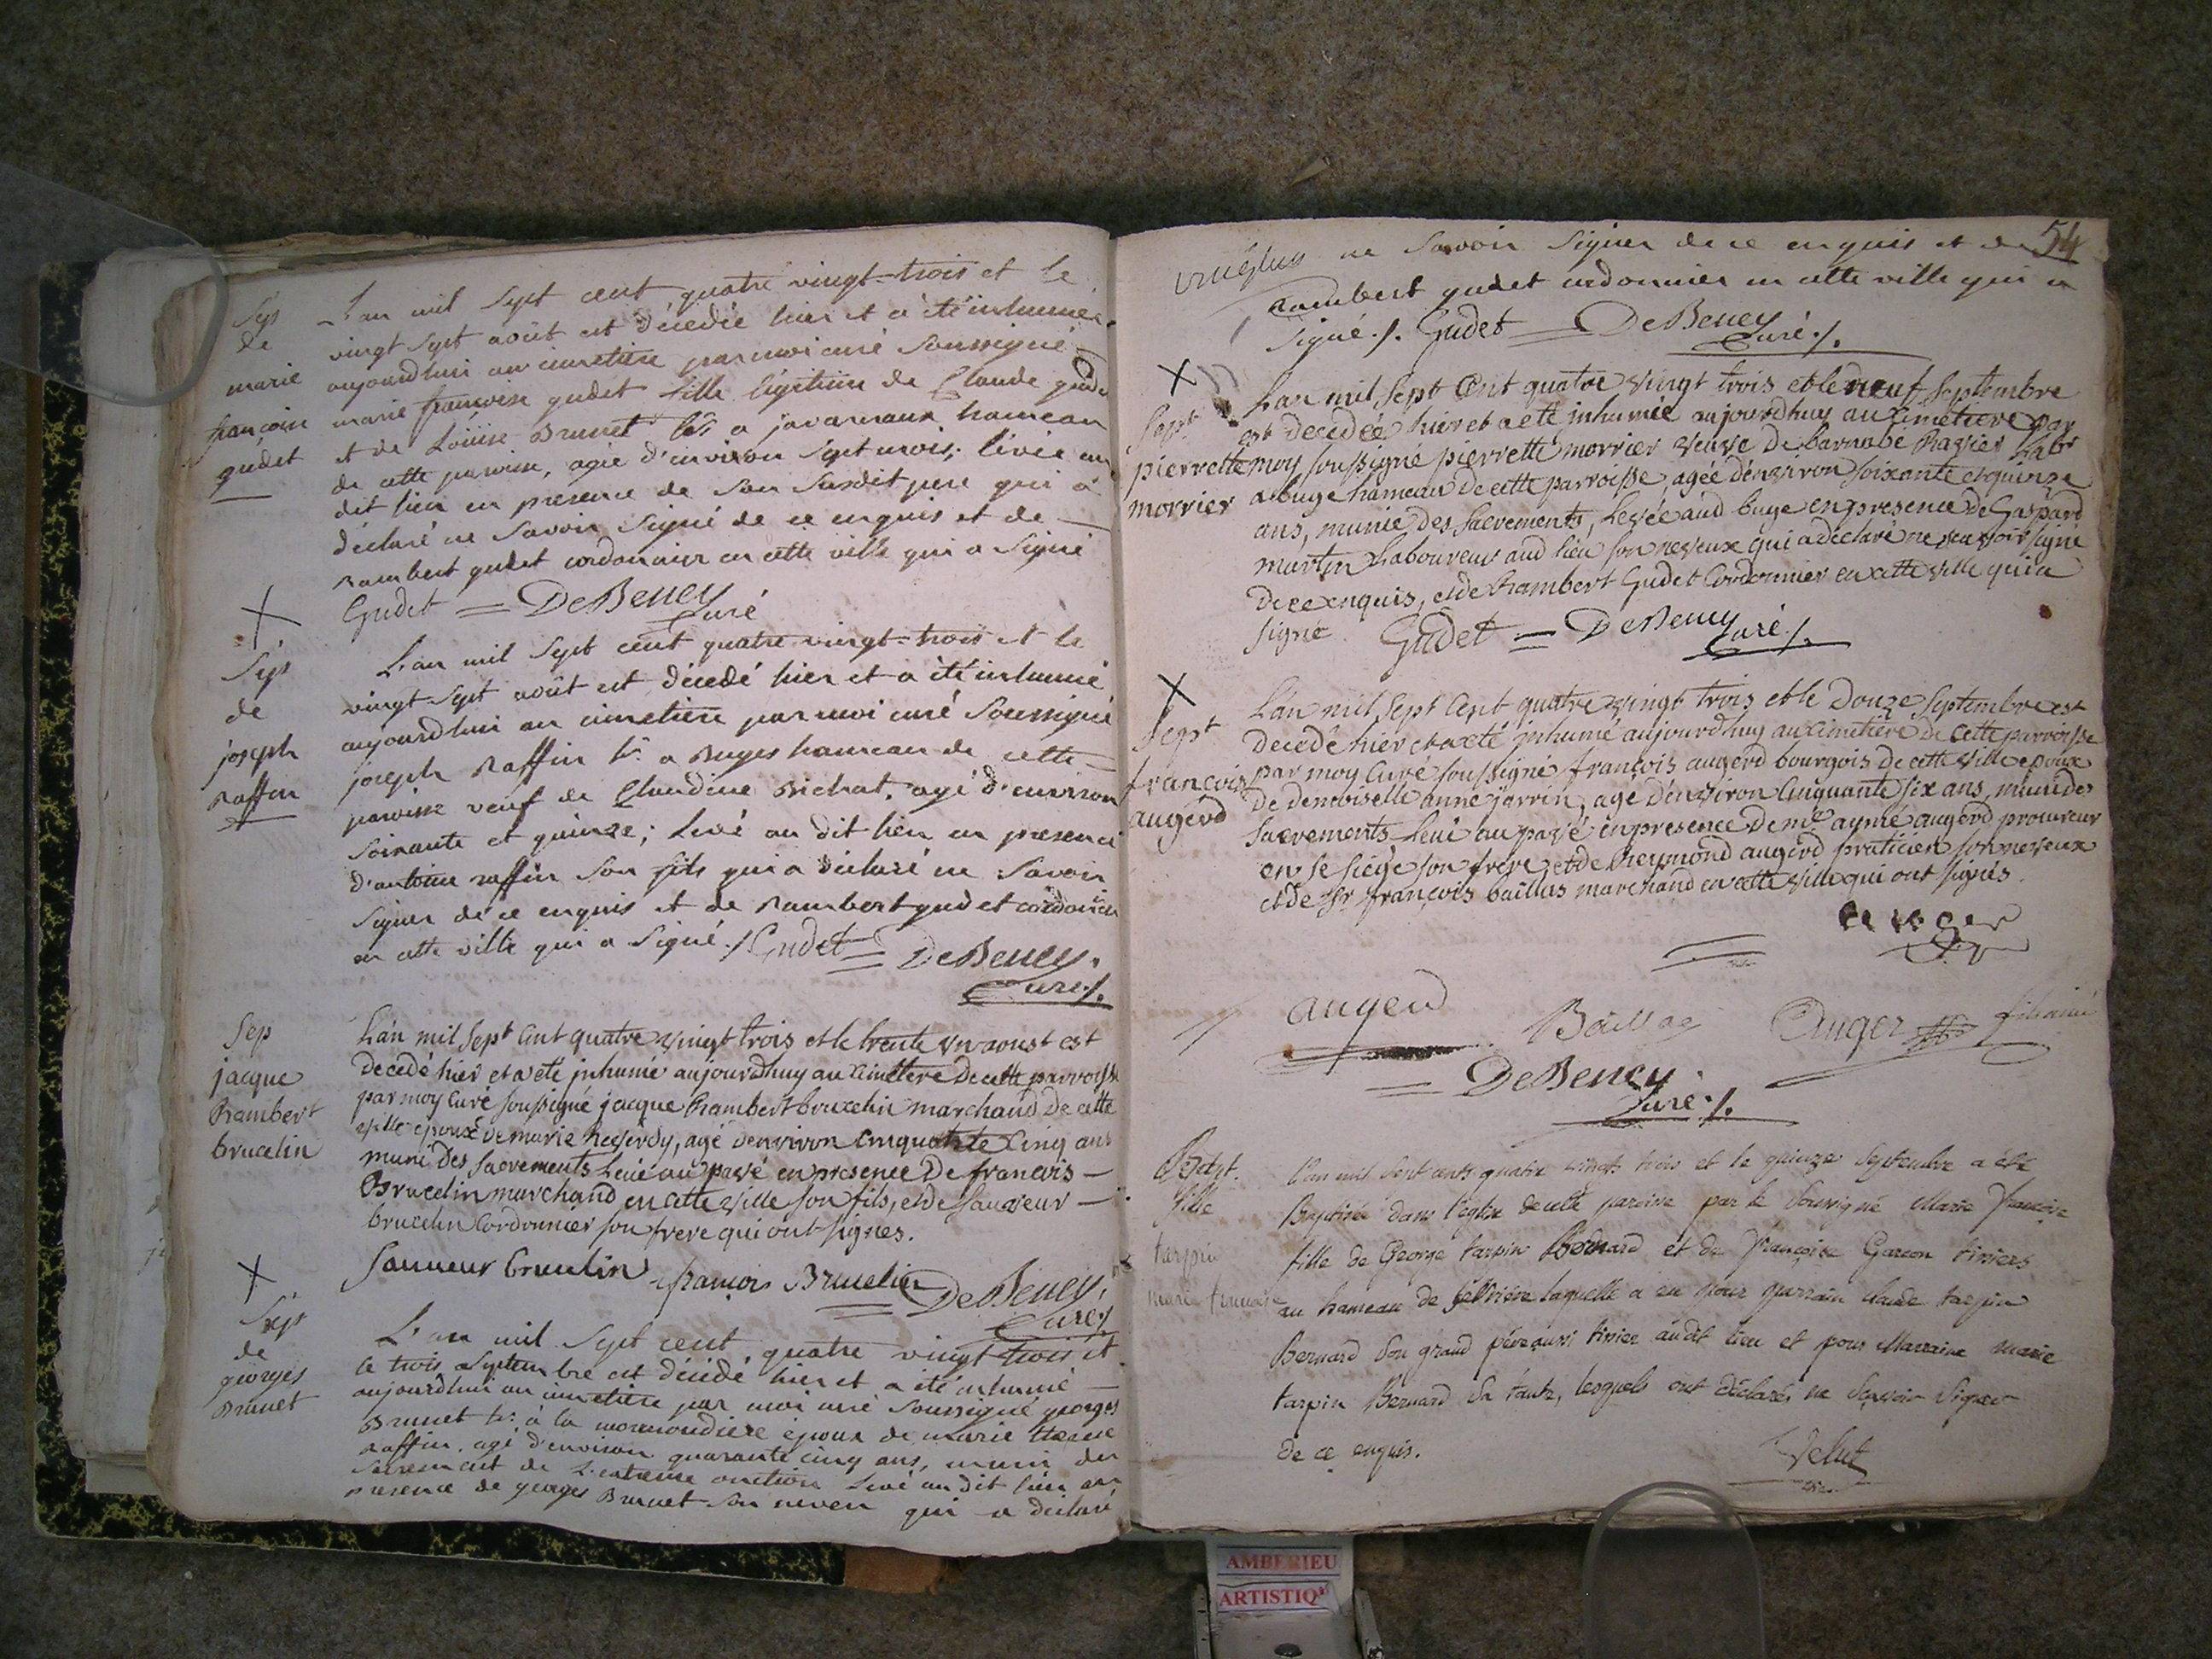 Sép
de
marie
françoise
gudet
L'an mil sept cent quatre vingt-trois et le
vingt sept août est décédée hier et a été inhumée
aujourd'hui au cimetière par moi curé soussigné
marie françoise gudet fille légitime de Claude gudet
et de Loüise Brunet à javarnaux hameau
de cette paroisse, agée d'environ sept mois, livée au
dit lieu en presence de son susdit pere qui a
déclaré ne savoir signé de ce enquis et de
rambert gudet cordonnier en cette ville qui a signé
Gudet = DeBeney
Curé
Sép
de
joseph
Raffin
L'an mil sept cent quatre vingt-trois et le
vingt sept août est décedé hier et a été inhumé
aujourd'hui au cimetière par moi curé soussigné
joseph Raffin hr. a Buges hameau de cette
paroisse veuf de Claudine Bichat, agé d'environ
soixante et quinze; Levé au dit lieu en presence
d'antoine raffin son fils qui a déclaré ne savoir
signer de ce enquis et de Rambert gudet cordonnier
en cette ville qui a signé ./. Gudet = DeBeney.
Curé ./.
Sep
jacque
Rambert
brucelin
Lan mil sept cent quatre vingt trois et le trente un aoust est
decedé hier et a eté jnhumé aujourdhuy au Cimetere de cette parroisse
par moy Curé soussigné jacque Rambert brucelin marchand de cette
ville epoux de marie Reverdy, agé denviron Cinquante Cinq ans
muni des sacrements Levé au pavé en presence De francois
Brucelin marchand en cette ville son fils, et de sauveur
brucelin Cordonnier son frere qui ont signés.
Sauveur brucelin françois Brucelin = DeBeney,
Curé ./.
Sép
de
géorges
Brunet
L'an mil sept cent quatre vingt trois et
le trois septembre est décédé hier et a été inhumé
aujourd'hui au cimetière par moi curé soussigné georges
Brunet hr. à la mormondière époux de marie
Raffin, agé d'environ quarante cinq ans, muni du
sacrement de L'extreme onction Levé au dit lieu en
presence de georges Brunet son neveu qui a déclaré
54
ne savoir signer de ce enquis et de
rambert gudet cordonnier en cette ville qui a
signé ./. Gudet = DeBeney
Curé ./.
Sept
pierrette
morrier
Lan mil sept Cent quatre vingt trois et le neuf septembre
est decedée hier et a eté jnhumée aujourdhuy au Cimetiere par
moy soussigné pierrette morrier veuve de barnabé Ravier Labr
a buge hameau de cette parroisse, agée dénviron soixante et quinze
ans, munie des sacrements, Levée aud buge en presence de Gaspard
martin Laboureur aud lieu son neveux qui a déclaré ne scavoir signé
de ce enquis, et de Rambert Gudet Cordonnier en cette ville qui a
signé Gudet = DeBeney
Curé ./.
Sept
françois
augerd
Lan mil sept Cent quatre vingt trois et le Douze septembre est
decedé hier et a eté jnhumé aujourdhuy au Cimetiere de cette parroisse
par moy Curé soussigné françois augerd bourgois de cette ville epoux
de demoiselle anne jarrin, agé d'environ Cinquante six ans, muni des
sacrements Levé au pavé en presence De me aymé augerd procureur
en se siege son frere, et de Reymond augerd praticien son neveux
et de sr françois baillias marchand en cette ville qui ont signés.
auger
augerd
Auger
DeBeney
Curé ./.
Sept.
fille
tarpin
marie francoise
L'an mil sept cents quatre vingts trois et le quinze septembre a été
Baptisée dans l'eglise de cette paroisse par le soussigné Marie françoise
fille de George tarpin Bernard et de françoise Garcon tissiers
au hameau de laquelle a eu pour parrain claude tarpin
Bernard son grand pére aussi tissier audit lieu et pour Marraine marie
tarpin Bernard sa tante, lesquels ont déclarés ne sçavoir signer
de ce enquis. Velut
vic.
AMBERIEU
ARTISTIQ